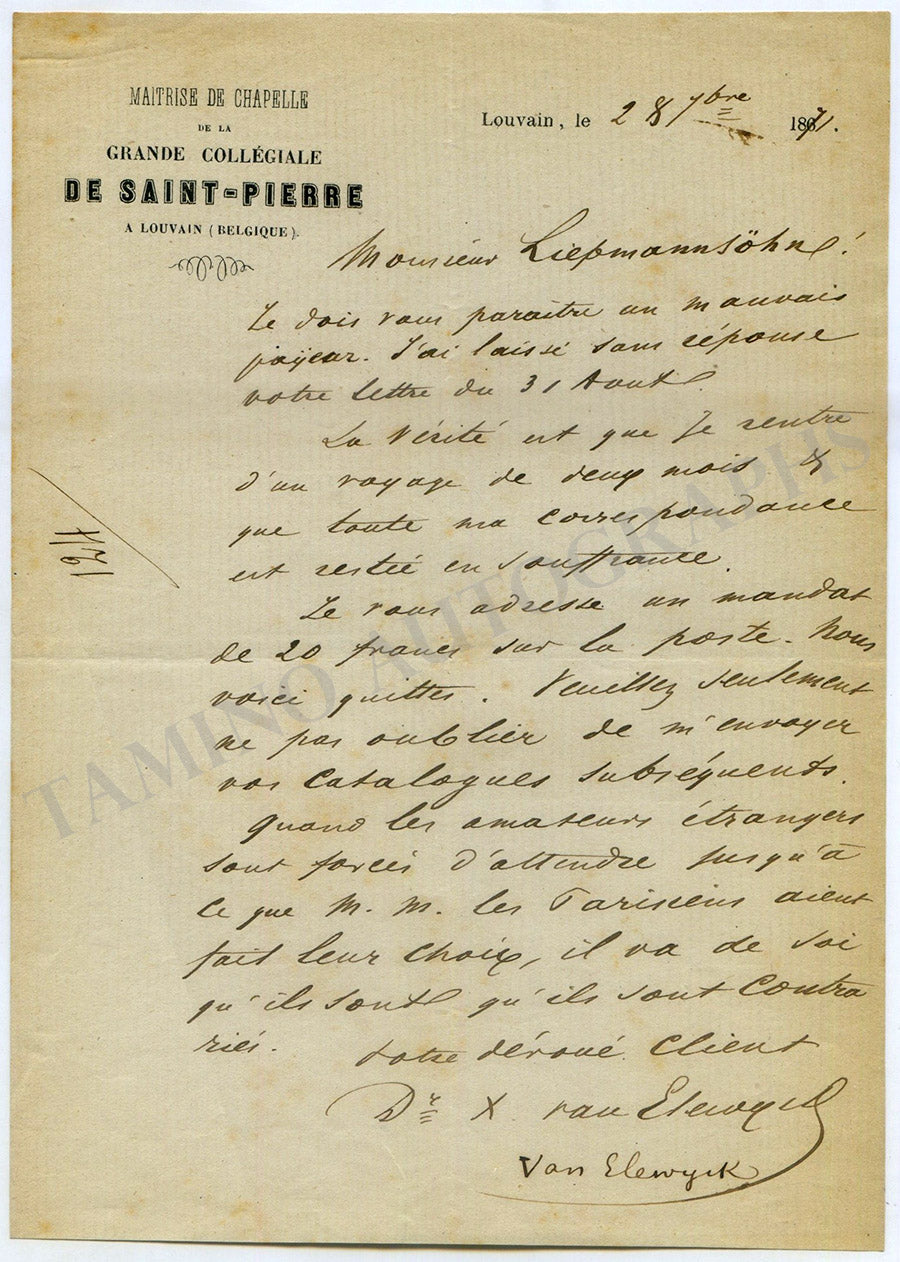 MAITRISE DE CHAPELLE
DE LA
GRANDE COLLÉGIALE
DE SAINT-PIERRE
A LOUVAIN (BELGIQUE).
Louvain, le 28 7bre 1871.
Monsieur Liepmannsöhn!
Je dois vous paraître un mauvais
payeur. J'ai laissé sans réponse
votre lettre du 31 Aout.
La Vérité est que je rentre
d'un voyage de deux mois &
que toute ma correspondance
est restée en souffrance.
Je vous adresse un mandat
de 20 francs sur la poste. Nous
voici quittes. Veuillez seulement
ne pas oublier de m'envoyer
vos Catalogues subséquents.
Quand les amateurs étrangers
sont forcés d'attendre jusqu'à
ce que M. M. les Parisiens aient
fait leur choix, il va de soi
qu'ils sont qu'ils sont Contra
riés.
Votre dévoué Client
Dr X. van Elewyck
Van Elewyck
TAMINO AUTOGRAPHS